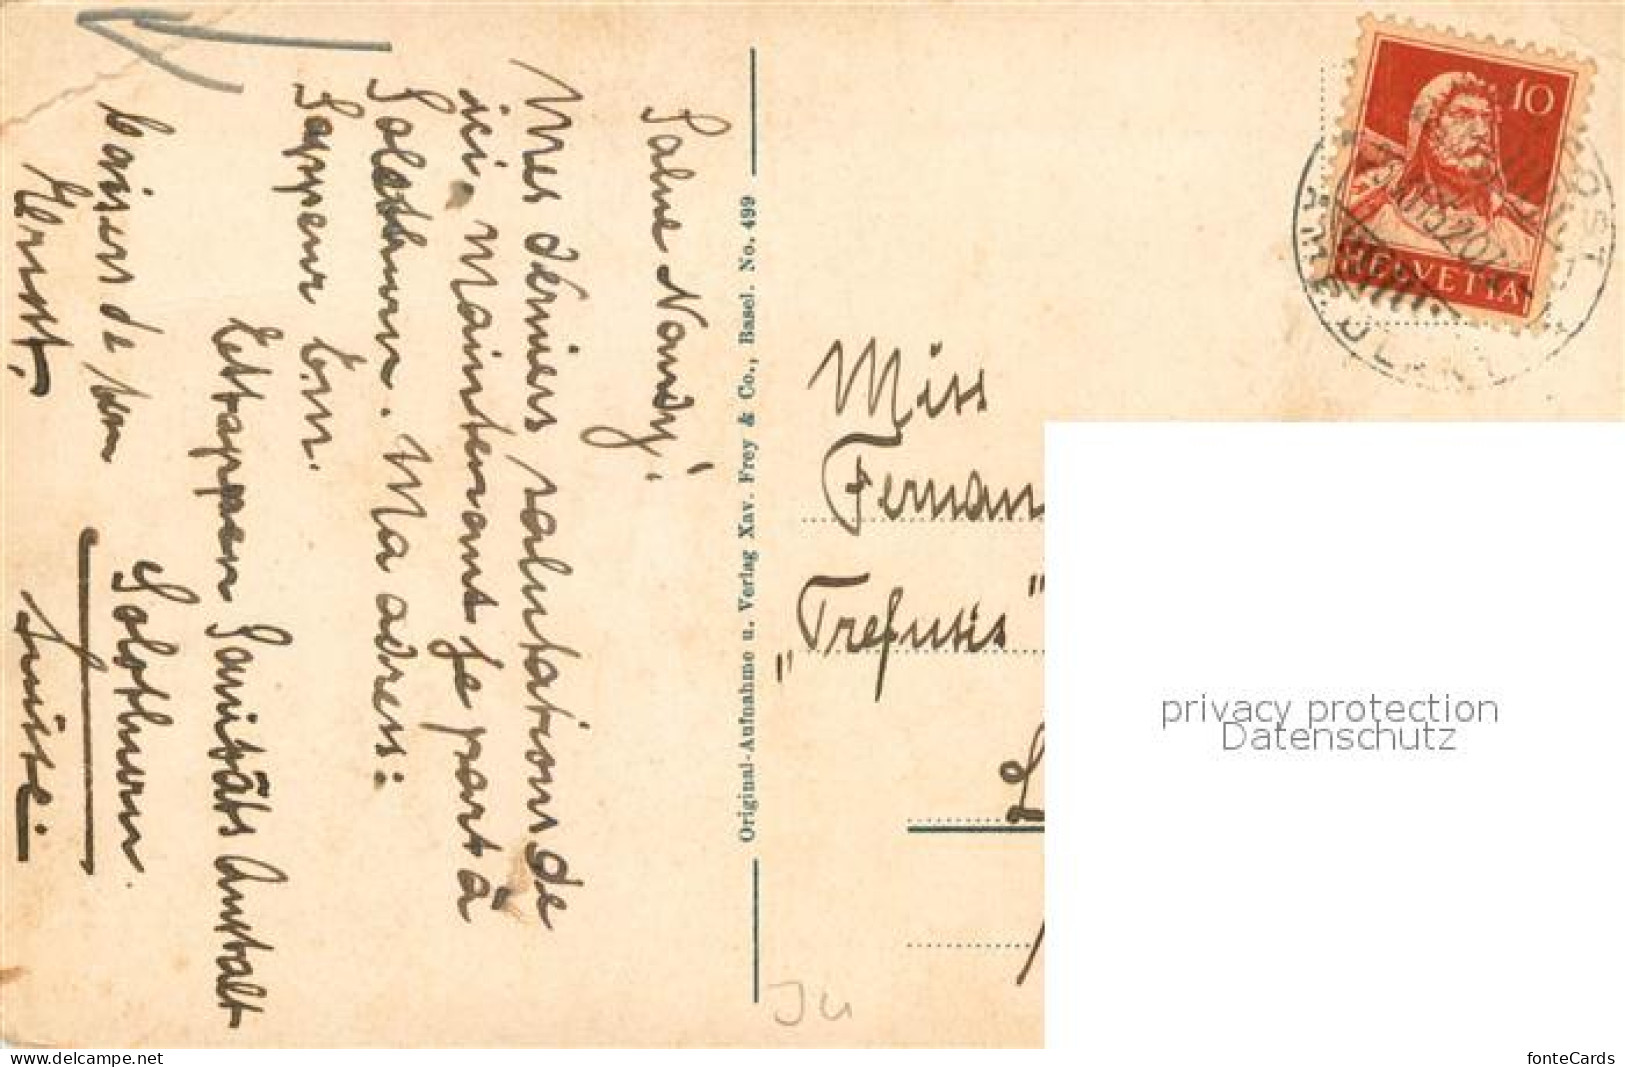 Salue Nandy!
Mes derniers salutations de
ici. Maintenant je part à
Solothurn. Ma adress:
Sappeur Em.
Ettappen Sanitäts Anstalt
Solothurn.
baisers de ton
Ernst,
Original-Aufnahme u. Verlag Xav. Frey & Co., Basel. No. 499
10
HELVETIA
Miss
Fernan
„Trefusis"
L
privacy protection
Datenschutz
www.delcampe.net
fonteCards